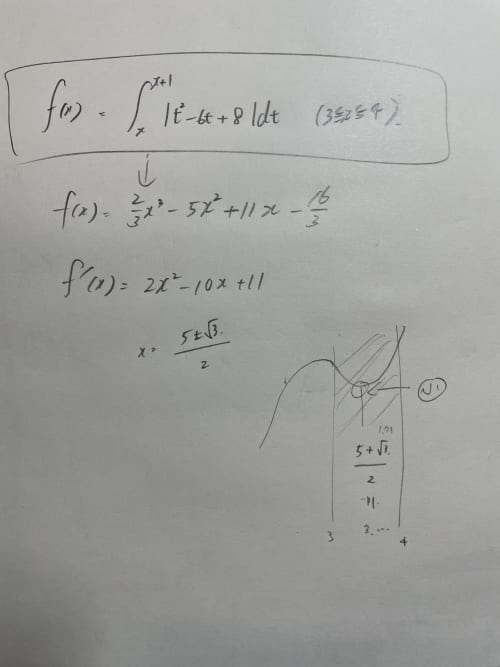 f(x) = ∫ₓˣ⁺¹ |t² - 6t + 8| dt (3 ≦ x ≦ 4)
↓
f(x) = 2/3 x³ - 5x² + 11x - 16/3
f'(x) = 2x² - 10x + 11
x = (5 ± √3)/2
小
1.73
(5 + √3)/2
=
3.…
3 4